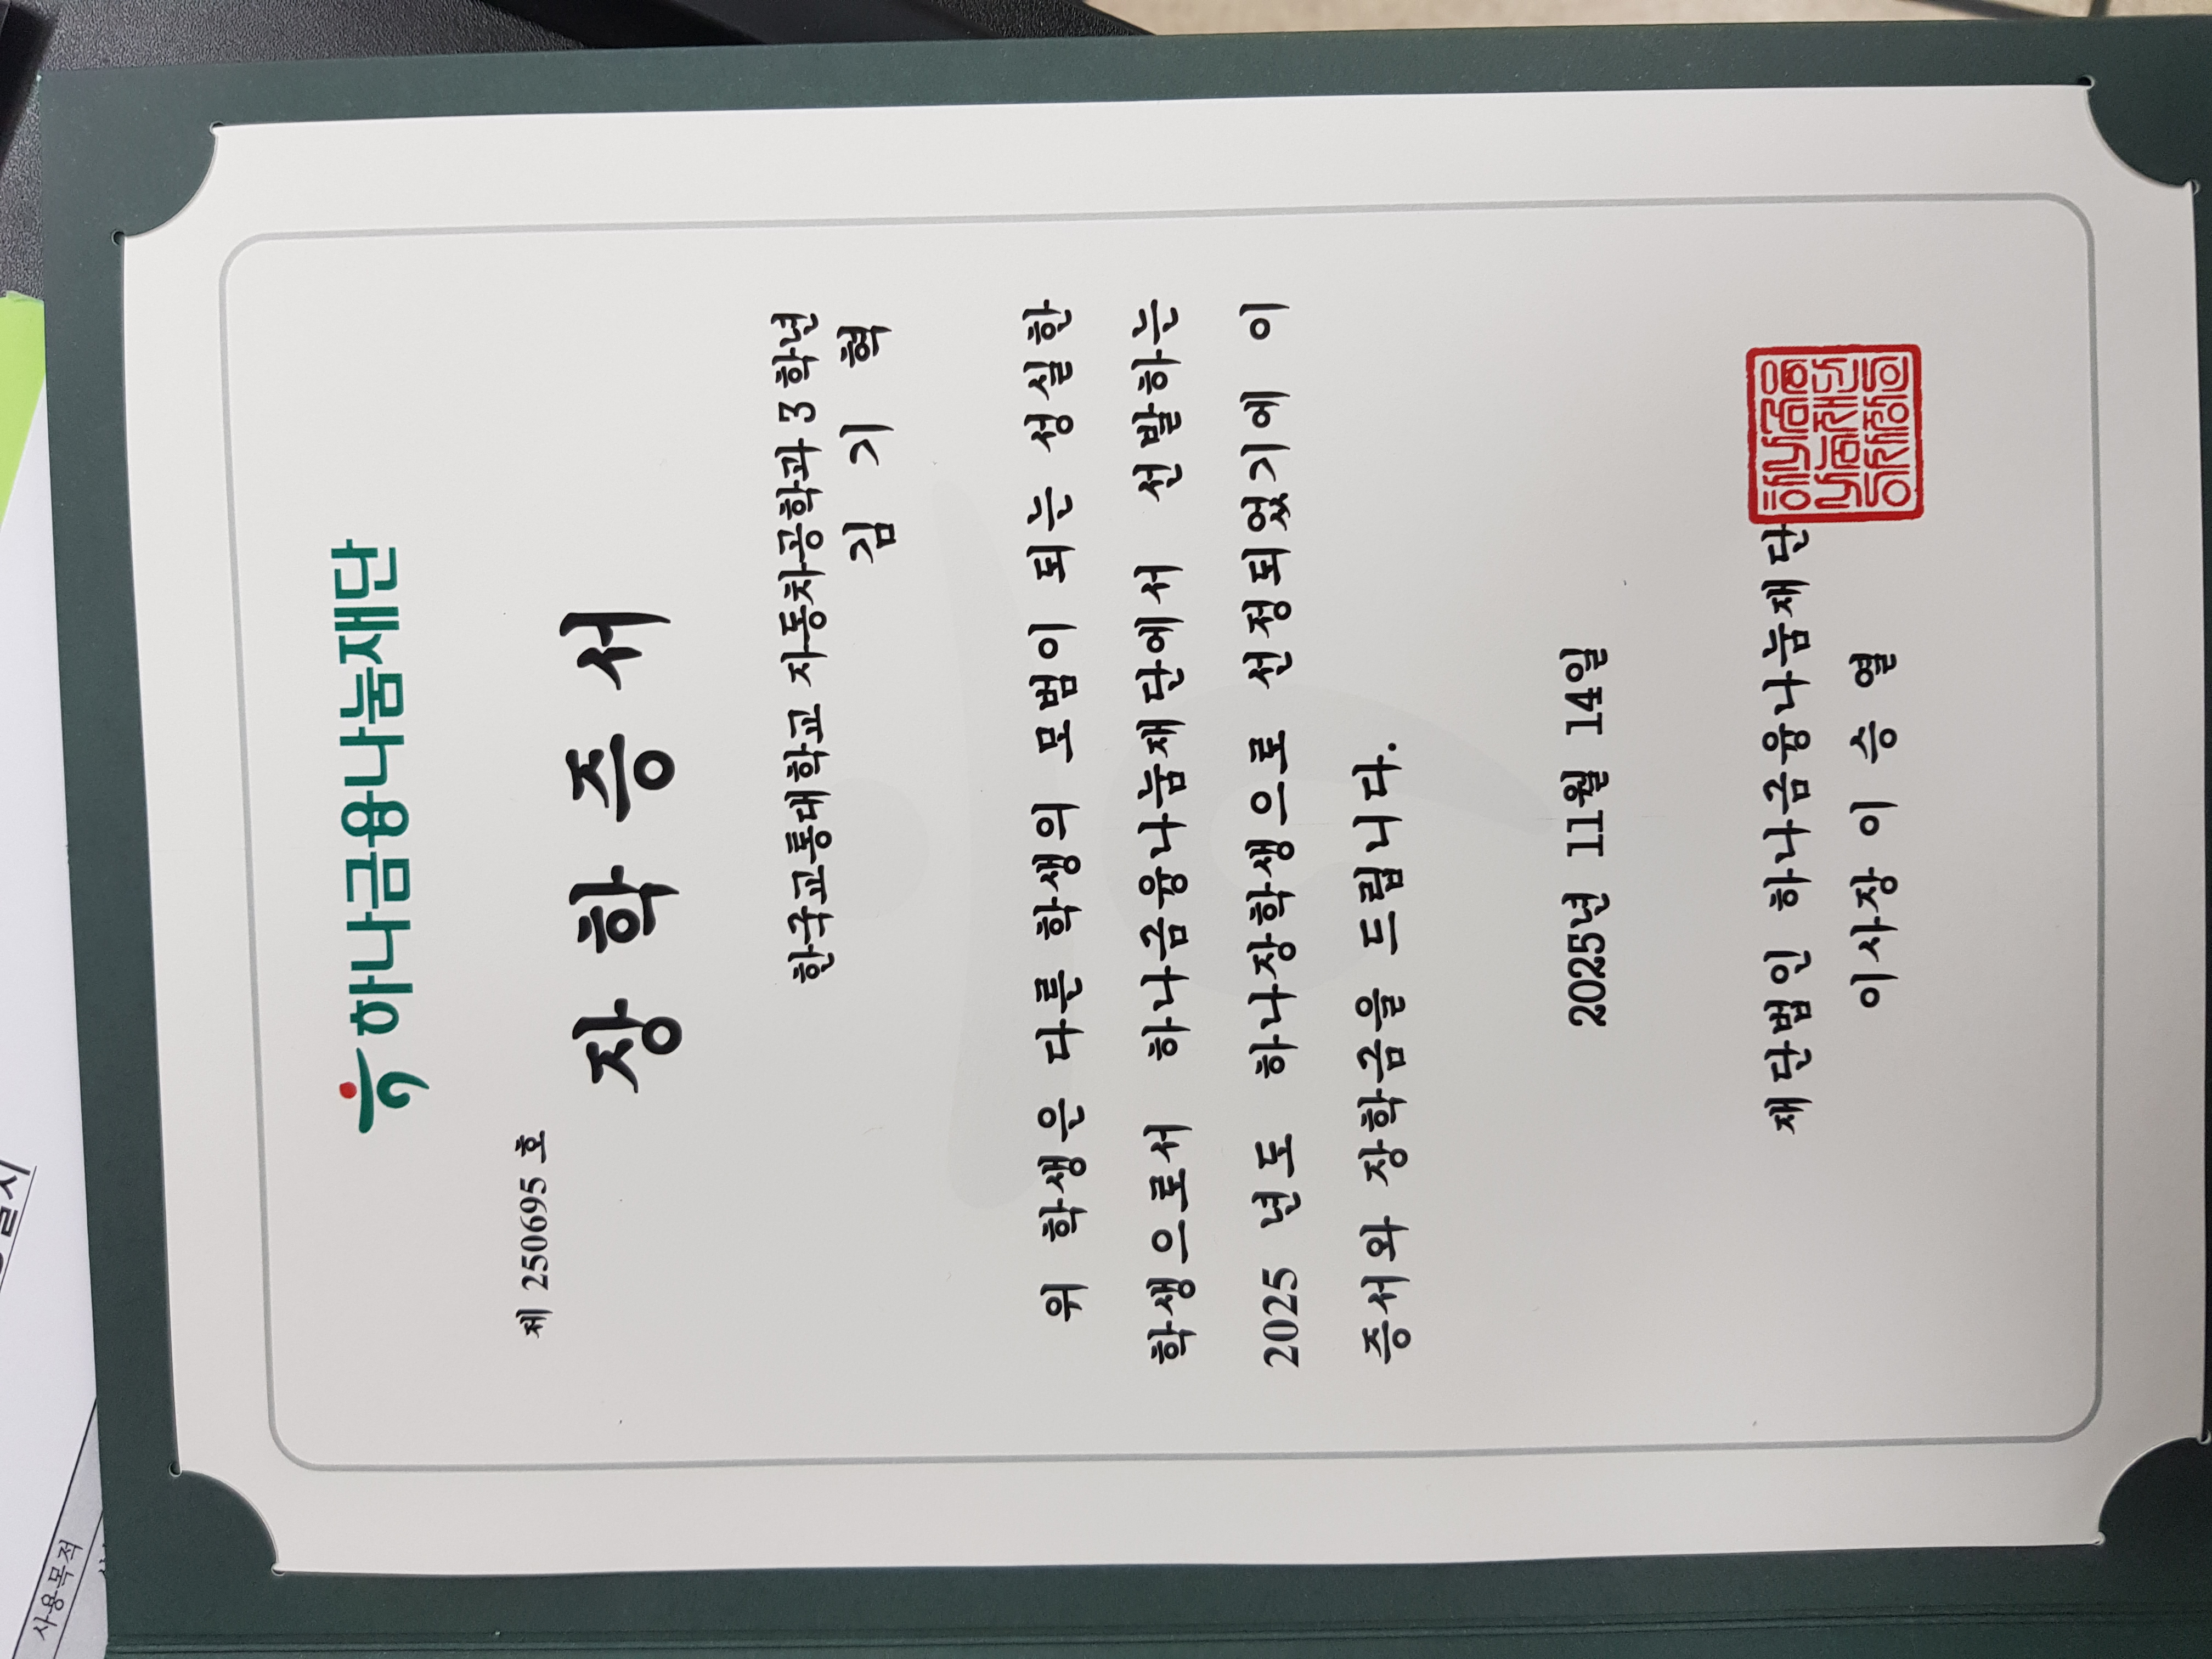 하나금융나눔재단
제 250695 호
장 학 증 서
한국교통대학교 자동차공학과 3 학년
김 기 혁
위 학생은 다른 학생의 모범이 되는 성실한
학생으로서 하나금융나눔재단에서 선발하는
2025 년도 하나장학생으로 선정되었기에 이
증서와 장학금을 드립니다.
2025년 11월 14일
재단법인 하나금융나눔재단
이사장 이 승 열
사용목적